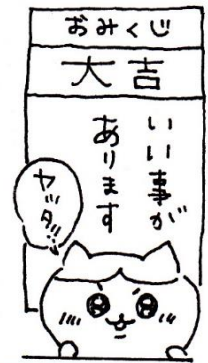 おみくじ
大吉
いい事が
あります
ヤッタ!!